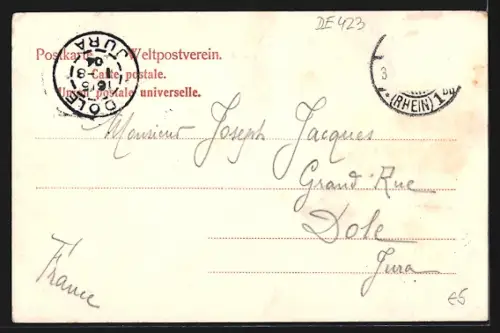 DE423
Postkarte. Weltpostverein.
Carte postale.
Union postale universelle.
DOLE
JURA
04
(RHEIN) 1
3
Monsieur Joseph Jacques
Grand Rue
Dole
Jura
France
€5